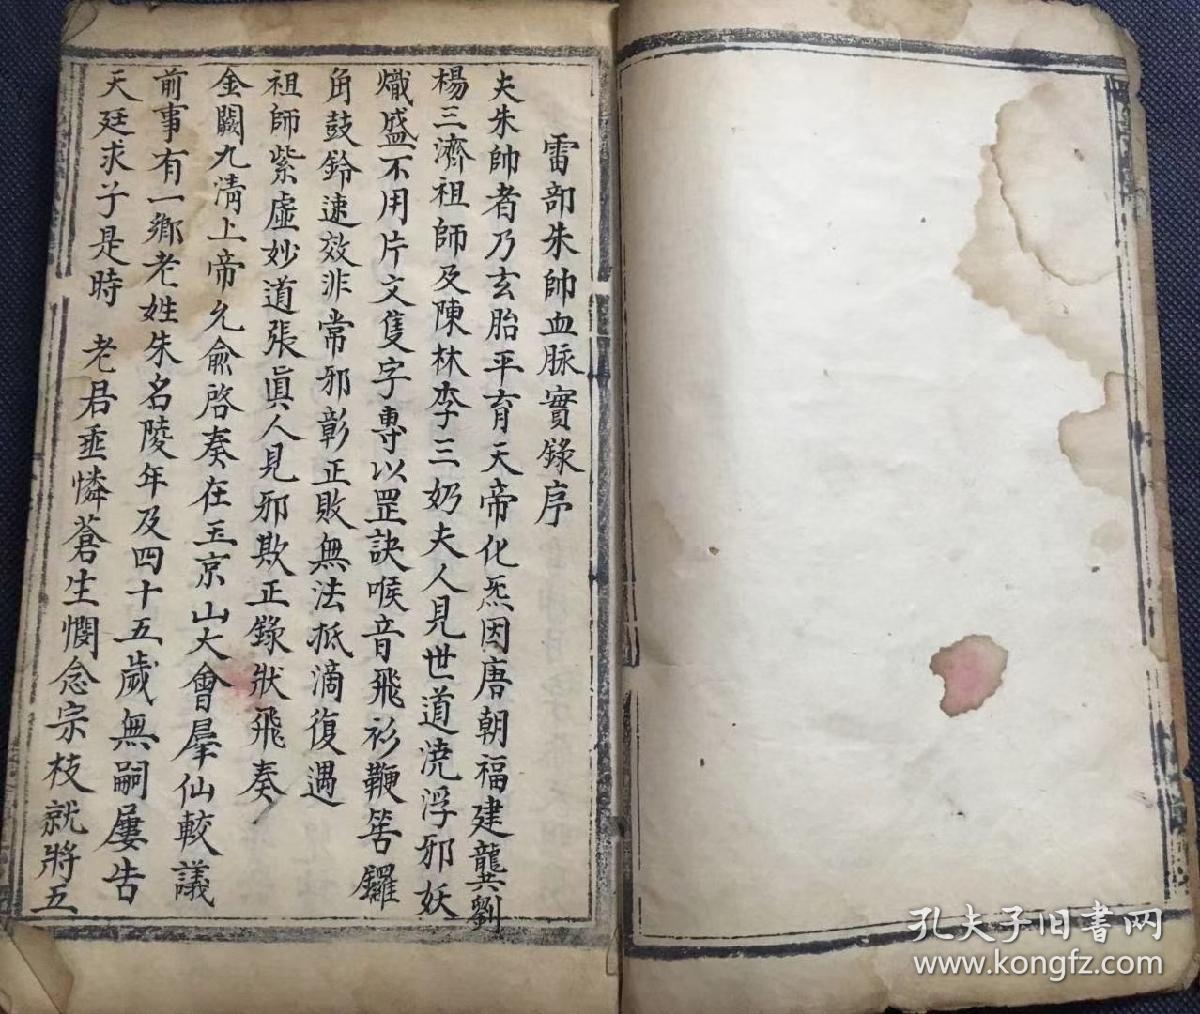 雷部朱帥血脉實錄序
夫朱帥者乃玄胎平育天帝化炁因唐朝福建龔劉
楊三濟祖師及陳林李三奶夫人見世道澆浮邪妖
熾盛不用片文隻字專以罡訣喉音飛衫鞭筶鑼
角鼓鈴速效非常邪彰正敗無法抵滴復遇
祖師紫虛妙道張真人見邪欺正錄狀飛奏
金闕九清上帝允俞啓奏在玉京山大會羣仙較議
前事有一鄉老姓朱名陵年及四十五歲無嗣屢告
天廷求子是時 老君垂憐蒼生憫念宗枝就將五
孔夫子旧书网
www.kongfz.com